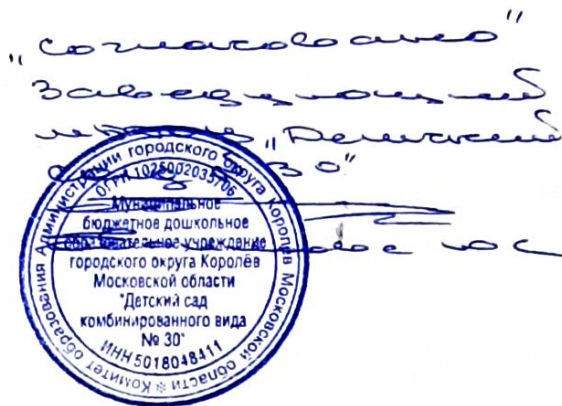 "Согласовано"
Заведующий
"Детский
30"
Комитет образования Администрации городского округа Королёв Московской области *
ОГРН 1025002035706
Муниципальное
бюджетное дошкольное
образовательное учреждение
городского округа Королёв
Московской области
"Детский сад
комбинированного вида
№ 30"
ИНН 5018048411